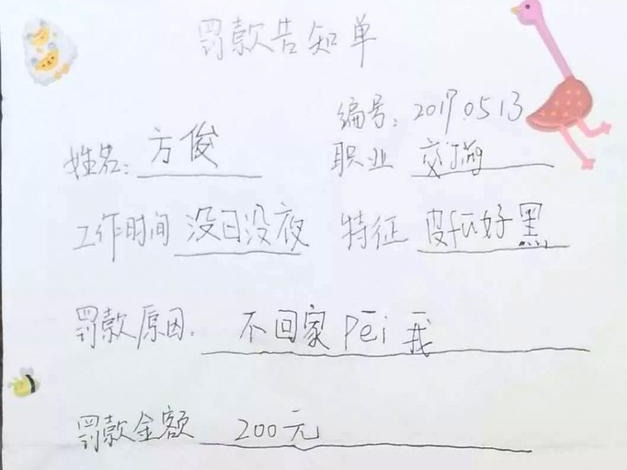 罚款告知单
编号：2017.05.13
姓名：方俊 职业 交jǐng
工作时间 没日没夜 特征 皮fū好黑
罚款原因. 不回家 Péi 我
罚款金额 200元